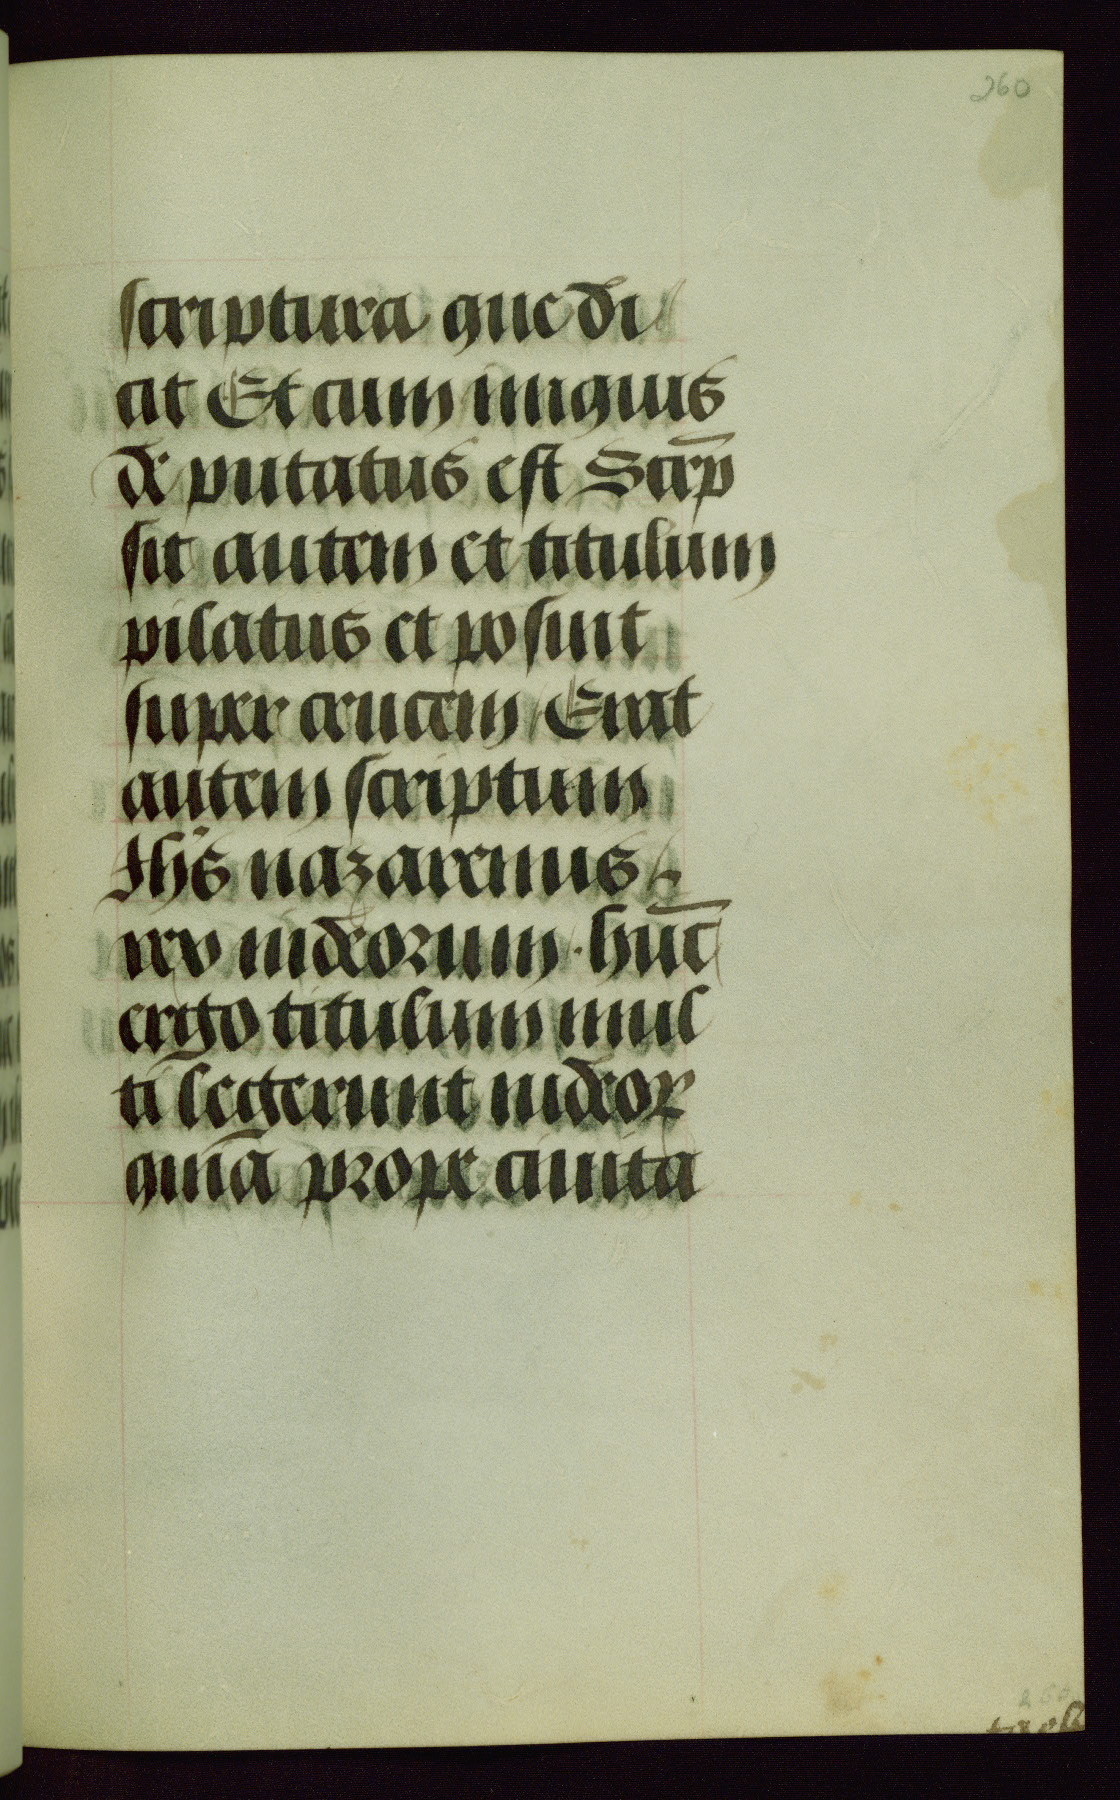 260
scriptura que di
cit Et cum iniquis
de putatus est Scrip̄
sit autem et titulum
pilatus et posuit
super crucem Erat
autem scriptum
Ihs nazarenus
rex iudeorum · hūc
ergo titulum mul
ti legerunt iudeoꝝ
quia prope ciuita